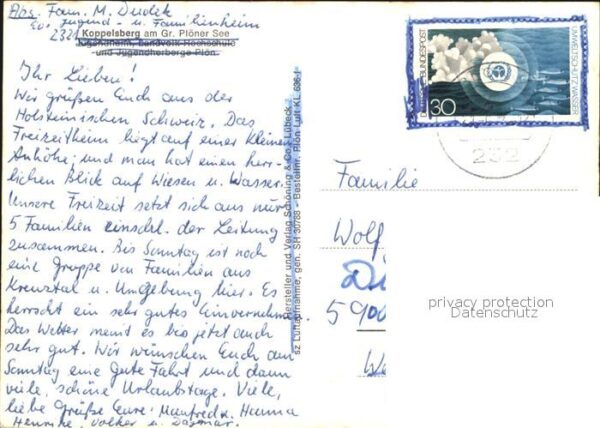 Abs. Fam. M. Dudek
Ev. Jugend- u. Familienheim
2321 Koppelsberg am Gr. Plöner See
Jugendheim, Landvolk-Hochschule
und Jugendherberge Plön
Ihr Lieben!
Wir grüßen Euch aus der
Holsteinischen Schweiz. Das
Freizeitheim liegt auf einer kleinen
Anhöhe, und man hat einen herr-
lichen Blick auf Wiesen u. Wasser.
Unsere Freizeit setzt sich aus nur
5 Familien einschl. der Leitung
zusammen. Bis Sonntag ist noch
eine Gruppe von Familien aus
Kreuztal u. Umgebung hier. Es
herrscht ein sehr gutes Einvernehmen.
Das Wetter meint es bis jetzt auch
sehr gut. Wir wünschen Euch am
Sonntag eine gute Fahrt und dann
viele, schöne Urlaubstage. Viele,
liebe Grüße Eure Manfred u. Hanna
Henrike, Volker u. Dagmar.
Hersteller und Verlag Schöning & Co., Lübeck
sz Luftaufnahme, gen. SH 30/788 - Bestellnr. Plön Luft KL 686
DEUTSCHE BUNDESPOST
30
UMWELTSCHUTZ: WASSER
232
Familie
Wolf
5900
privacy protection
Datenschutz